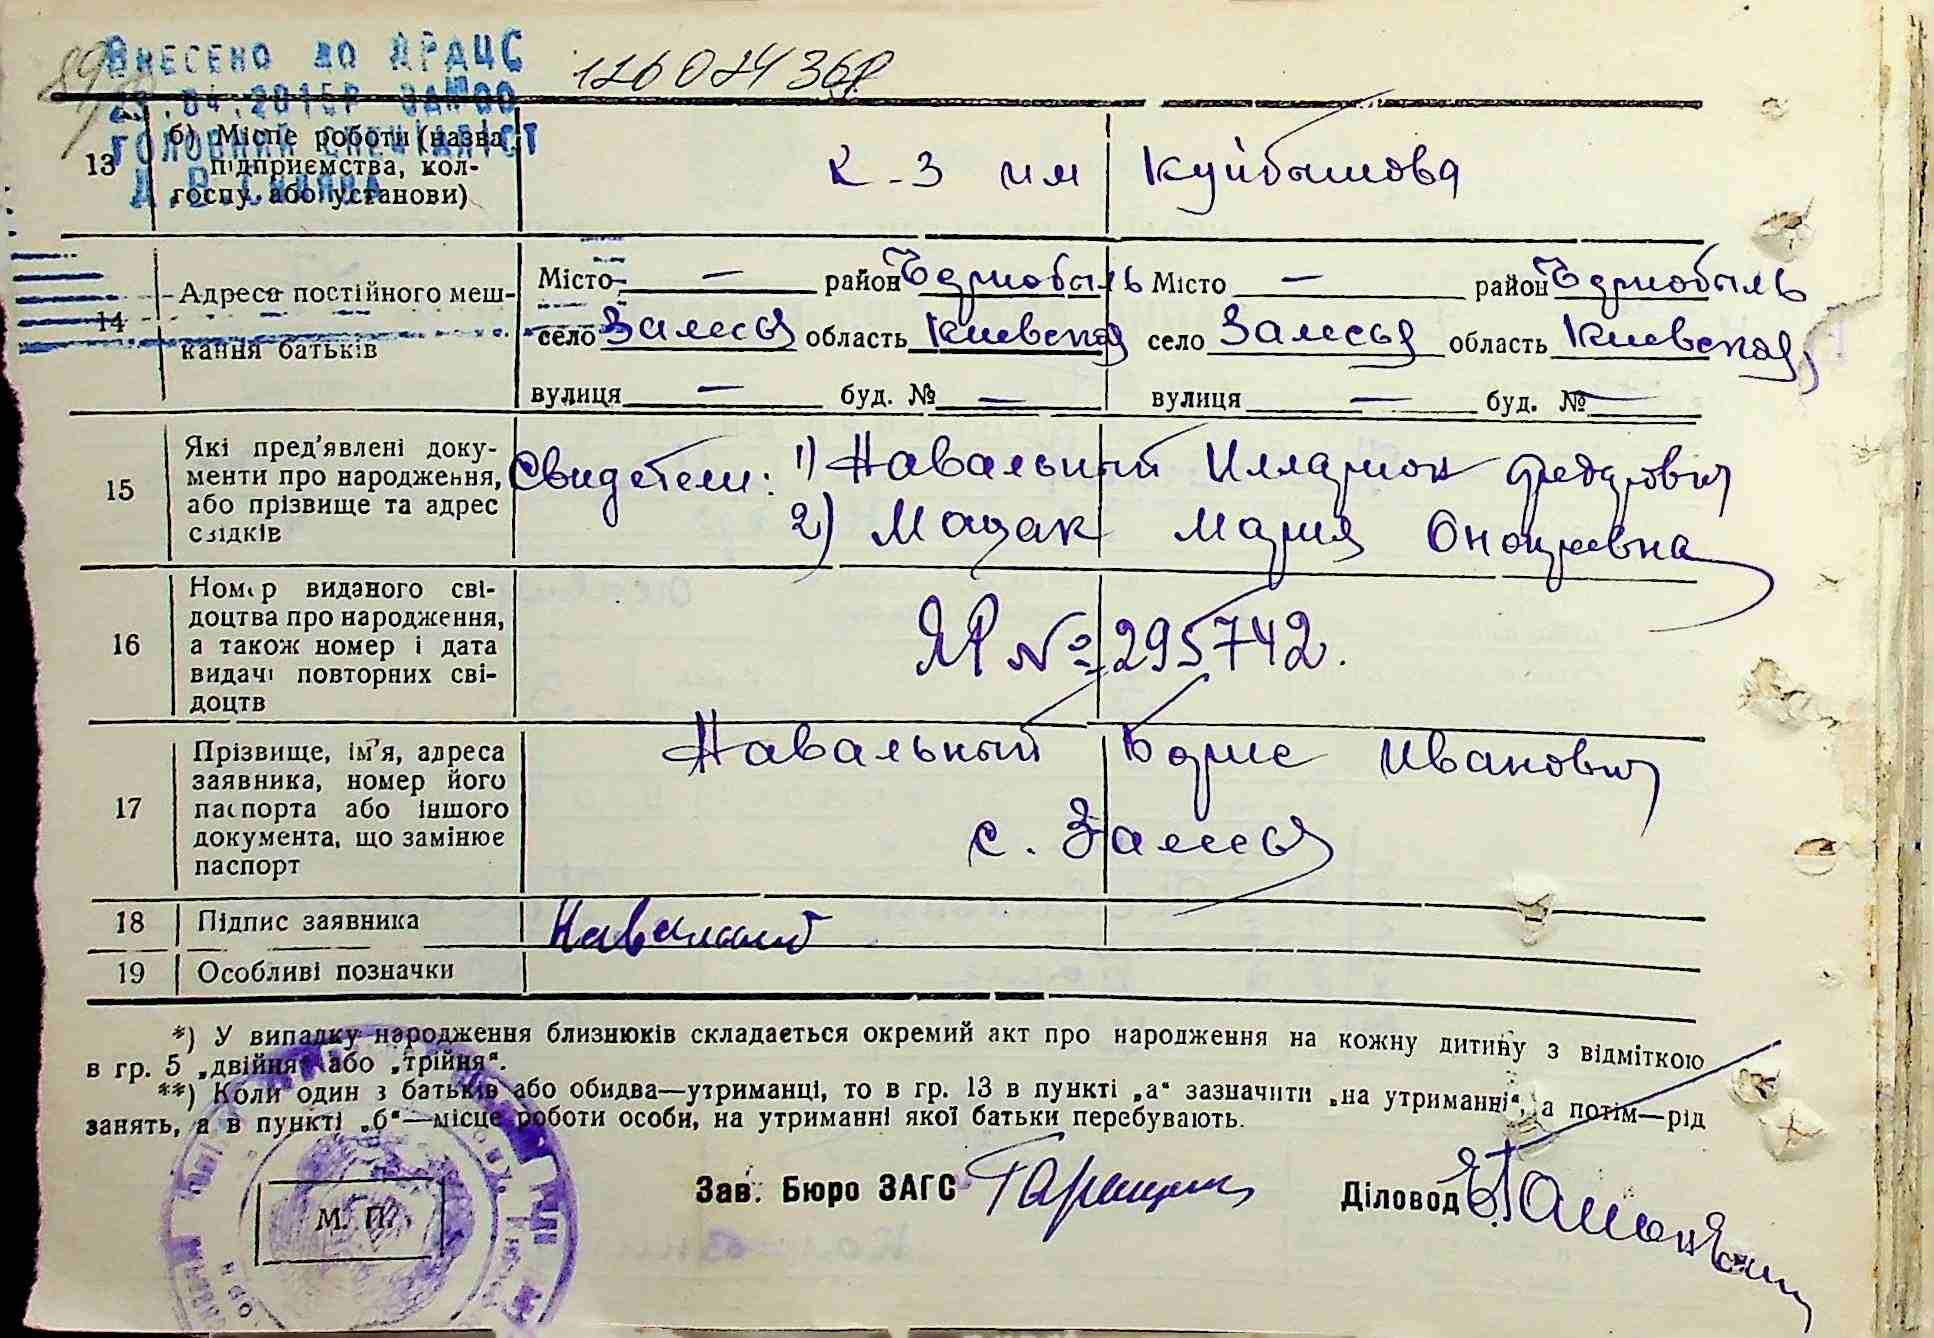 Внесено до ДРАЦС
12602436
.04.2015р
головний спеціаліст
13 б) Місце роботи (назва підприємства, колгоспу або установи)
к-з им Куйбышова
14 Адреса постійного мешкання батьків
Місто — район Чернобыль Місто — район Чернобыль
село Залесья область Киевская село Залесья область Киевская
вулиця — буд. № — вулиця — буд. № —
15 Які пред'явлені документи про народження, або прізвище та адрес свідків
Свидетели: 1) Навальный Илларион Федорович
2) Мацак Мария Оноцревна
16 Номер виданого свідоцтва про народження, а також номер і дата видачі повторних свідоцтв
ЯР № 295742.
17 Прізвище, ім'я, адреса заявника, номер його паспорта або іншого документа, що замінює паспорт
Навальный Борис Иванович
с. Залесья
18 Підпис заявника
Навальный
19 Особливі позначки
*) У випадку народження близнюків складається окремий акт про народження на кожну дитину з відміткою
в гр. 5 „двійня“ або „трійня“.
**) Коли один з батьків або обидва—утриманці, то в гр. 13 в пункті „а“ зазначити „на утриманні“, а потім—рід
занять, а в пункті „б“—місце роботи особи, на утриманні якої батьки перебувають.
Зав. Бюро ЗАГС Діловод
М. П.